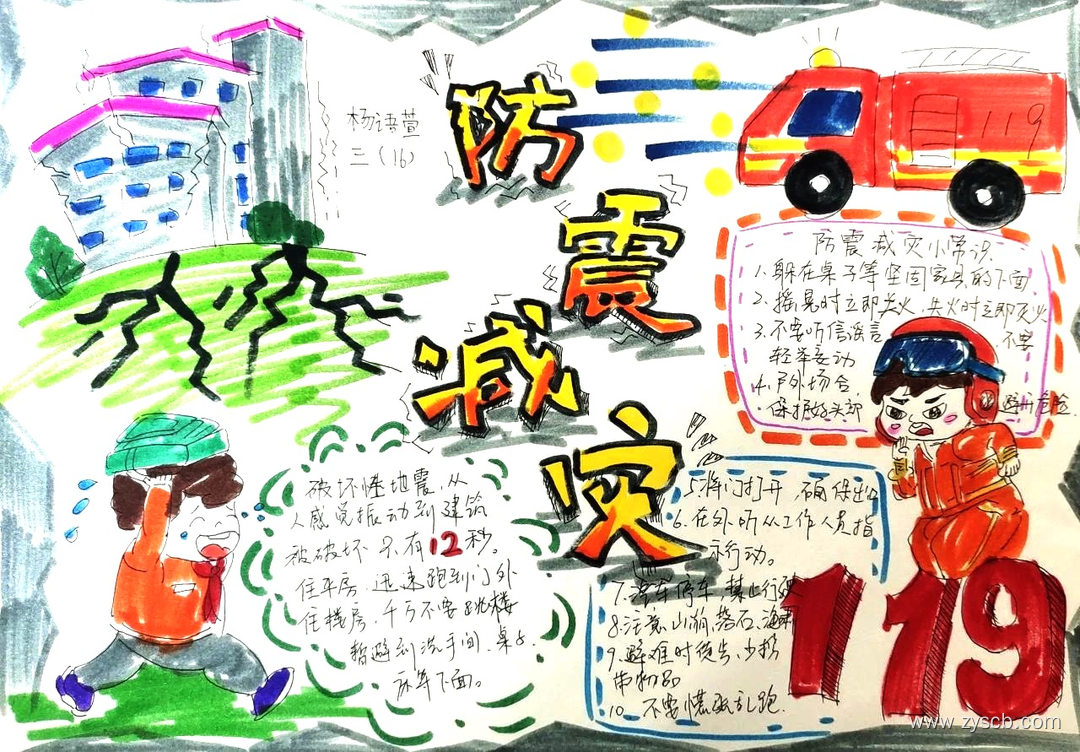 杨语萱
三（16）
防
震
减
灾
119
防震减灾小常识
1、躲在桌子等坚固家具的下面
2、摇晃时立即关火，失火时立即灭火
3、不要听信谣言，不要
轻举妄动
4、户外场合
保护好头部 避开危险
破坏性地震，从
人感觉振动到建筑
被破坏 只有12秒。
住平房，迅速跑到门外
住楼房，千万不要跳楼
暂避到洗手间、桌子、
床等下面。
5、将门打开，确保出口
6、在外听从工作人员指
示行动。
7、汽车停车 禁止行驶
8、注意山崩、落石、海啸
9、避难时徒步，少携
带物品
10、不要慌张乱跑
119
www.zyscb.com